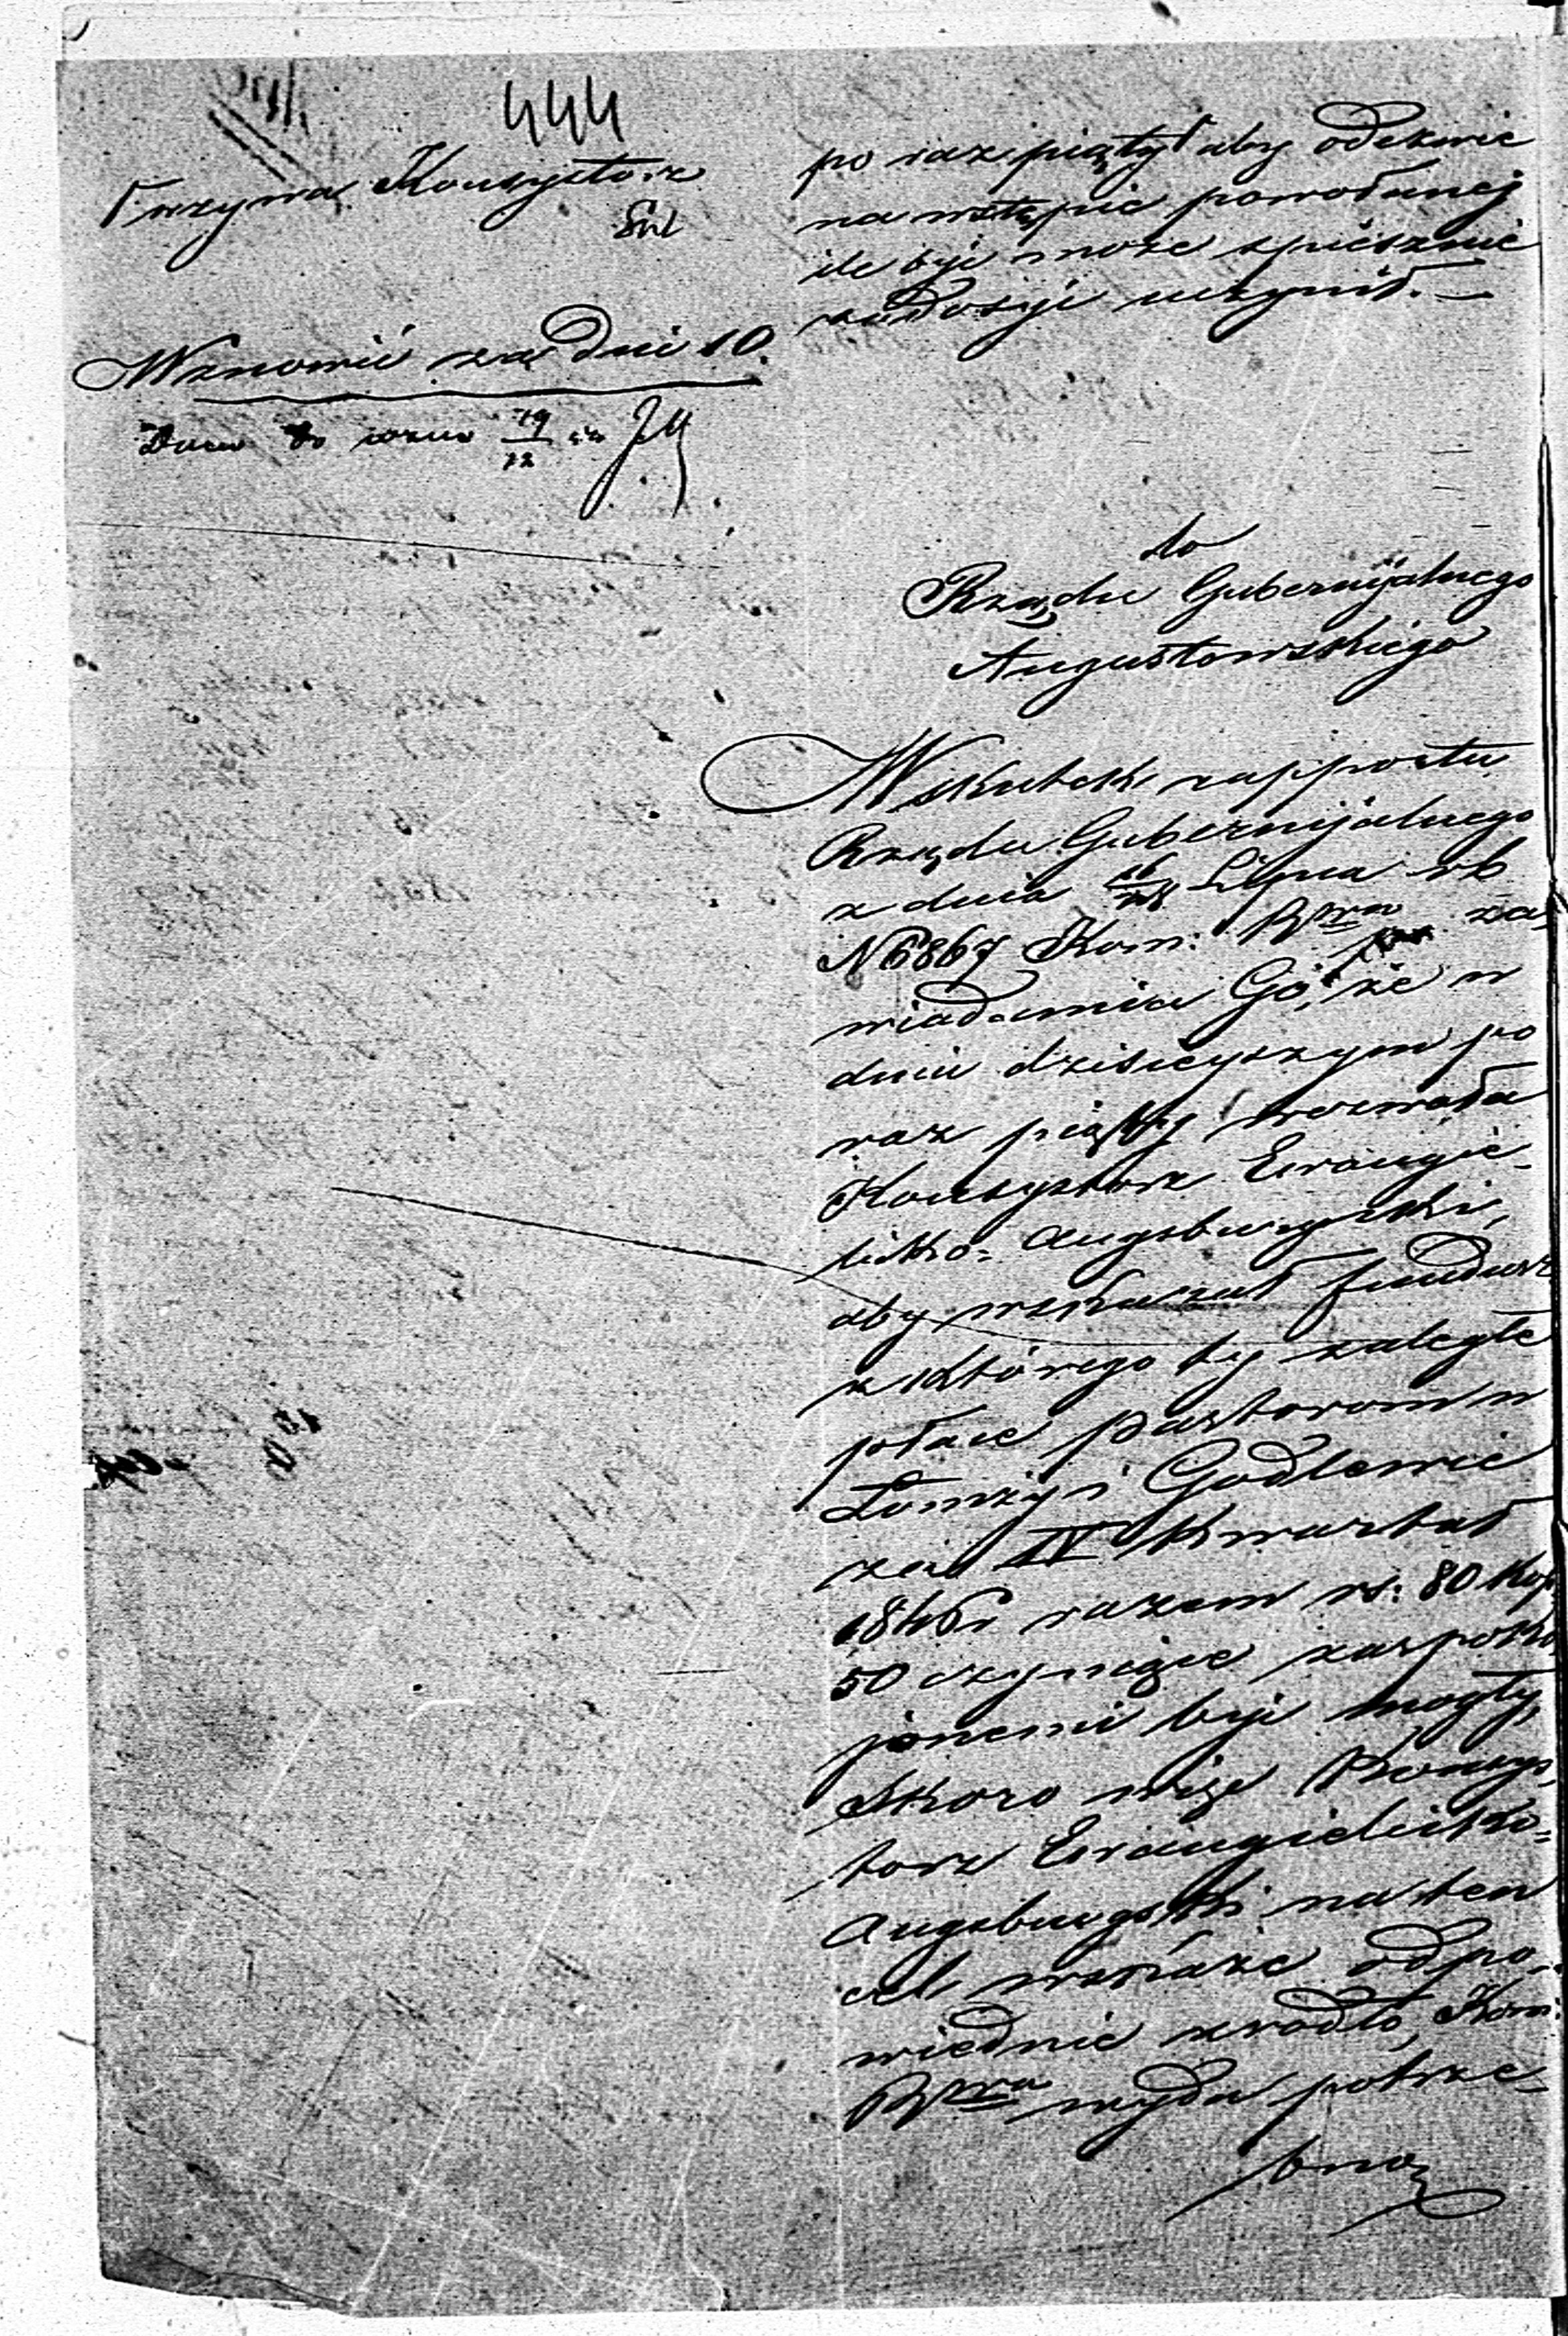 444
Wzywa Konsystorz
Wznowić za dni 10.
19
12
po raz piąty aby odezwie
na wstępie powołanej
ile być może spiesznie
zadosyć uczynił. —
do
Rządu Gubernijalnego
Augustowskiego
W skutek rapportu
Rządu Gubernijalnego
z dnia Lipca rb
N 6867 Kom: Rząwa za-
wiadamia Go, że w
dniu dzisiejszym po
raz piąty wezwała
Konsystorz Ewangie-
licko-Augsburgski,
aby wskazał fundusz
z którego by zaległe
płace Pastorom w
Łomży i Godlewie
za IV Kwartał
1846r razem rs: 80 kop
50 czyniące zaspoko-
jonemi być mogły,
Skoro więc Konsys-
torz Ewangielicko-
Augsburgski na ten
cel wskaże odpo-
wiednie źrodło, Kom:
Rząwa wyda potrze-
bne